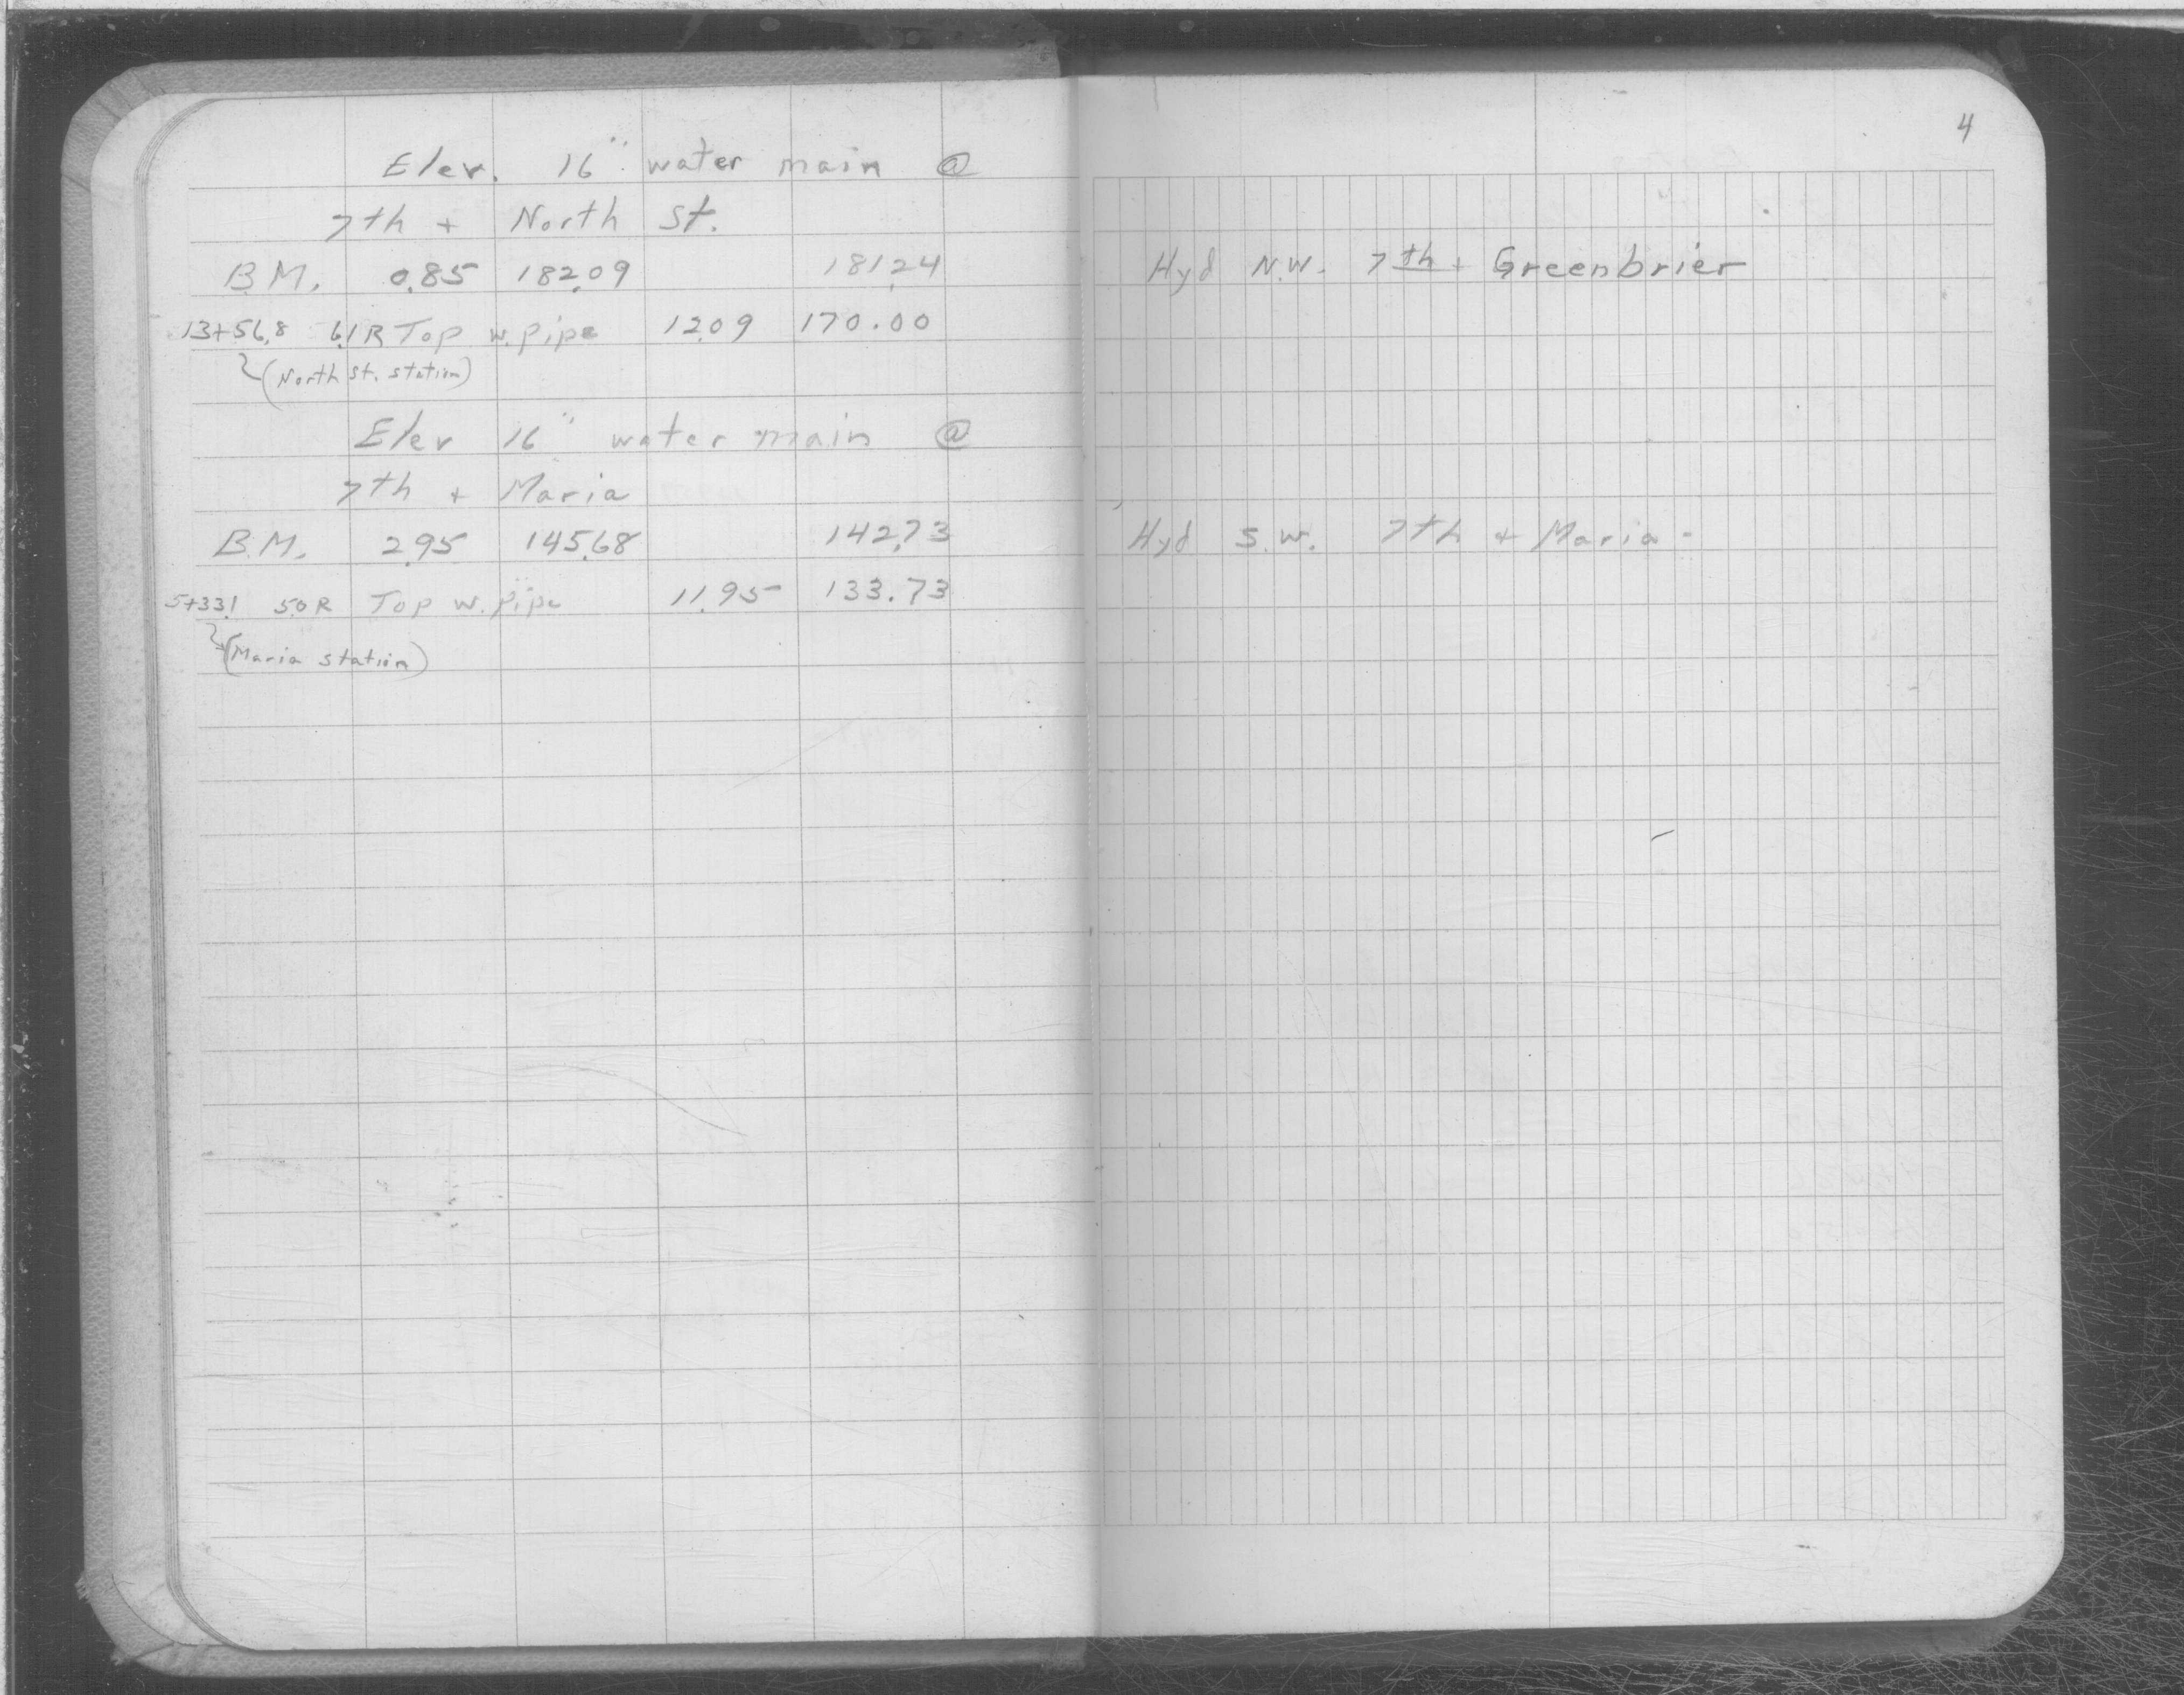 4
Elev. 16" water main @
7th + North St.
B.M. 0.85 182.09 181.24 Hyd N.W. 7th + Greenbrier
13+56.8 6.1 R Top w. pipe 12.09 170.00
(North St. station)
Elev 16" water main @
7th + Maria
B.M. 2.95 145.68 142.73 Hyd S.W. 7th + Maria -
5+33.1 5.0 R Top w. pipe 11.95 133.73
(Maria station)